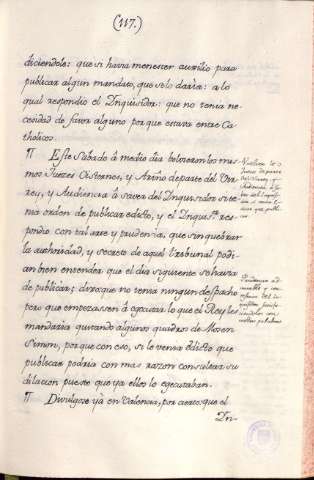 (117.)
diciendole: que si havia menester auxilio para
publicar algun mandato, que se lo daria: a lo
qual respondio el Inquisidor: que no tenia ne-
cesidad de favor alguno por que estava entre Ca-
tholicos.
¶ Este Sabado á medio dia bolvieron los mis-
mos Juezes Ocstores, y Ariño de parte del Vir-
rey, y Audiencia á saver del Inquisidor si te-
nia orden de publicar edicto, y el Inquisor res-
pondio con tal arte y prudencia, que sin quebrar
la authoridad, y secreto de aquel tribunal podi-
an bien entender que el dia siguiente se havia
de publicar; dixo que no tenia ningun despacho
pero que empezassen á egecutar lo que el Rey les
mandaria quitando algunos quadros de Mosen
Simon, por que con eso, si le venia Edicto que
publicar podria con mas razon consultar su
dilacion puesto que ya ellos lo egecutaban.
¶ Divulgose yà en Valencia, por cierto: que el
In-
Vuelven los
Juezes de parte
del Virrey, y
Audiencia á sa-
ber del Inquisi-
dor si tenia Edic-
to que publi-
car.
Prudencia ad-
mirable y con-
fusion del In-
quisidor